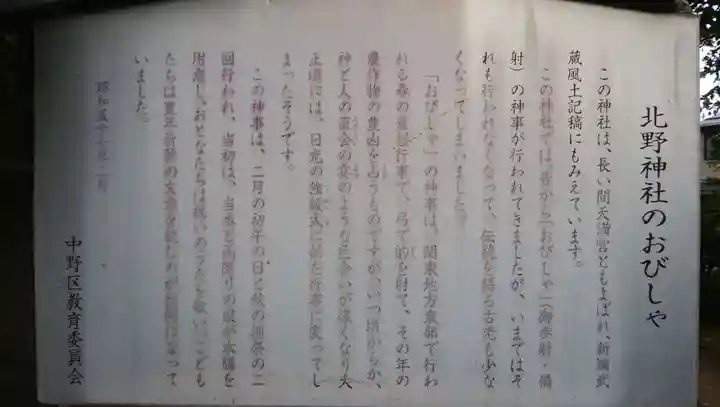 北野神社のおびしゃ
この神社は、長い間天満宮ともよばれ、新編武
蔵風土記稿にもみえています。
この神社では、昔から「おびしゃ」(御歩射・備
射)の神事が行われてきましたが、いまではそ
れも行われなくなって、伝統を語る古老も少な
くなってしまいました。
「おびしゃ」の神事は、関東地方東部で行わ
れる春の重要行事で、弓で的を射て、その年の
農作物の豊凶を占うものですが、いつ頃からか、
神と人の直会の宴のような色合いが濃くなり大
正頃には、日光の強飯式に似た行事に変ってし
まったそうです。
この神事は、二月の初午の日と秋の例祭の二
回行われ、当初は、当番と両隣りの家が本膳を
用意し、おとなたちは祝いのうたを歌い、こども
たちは
のが なって
いました。
昭和五十七年二月
中野区教育委員会